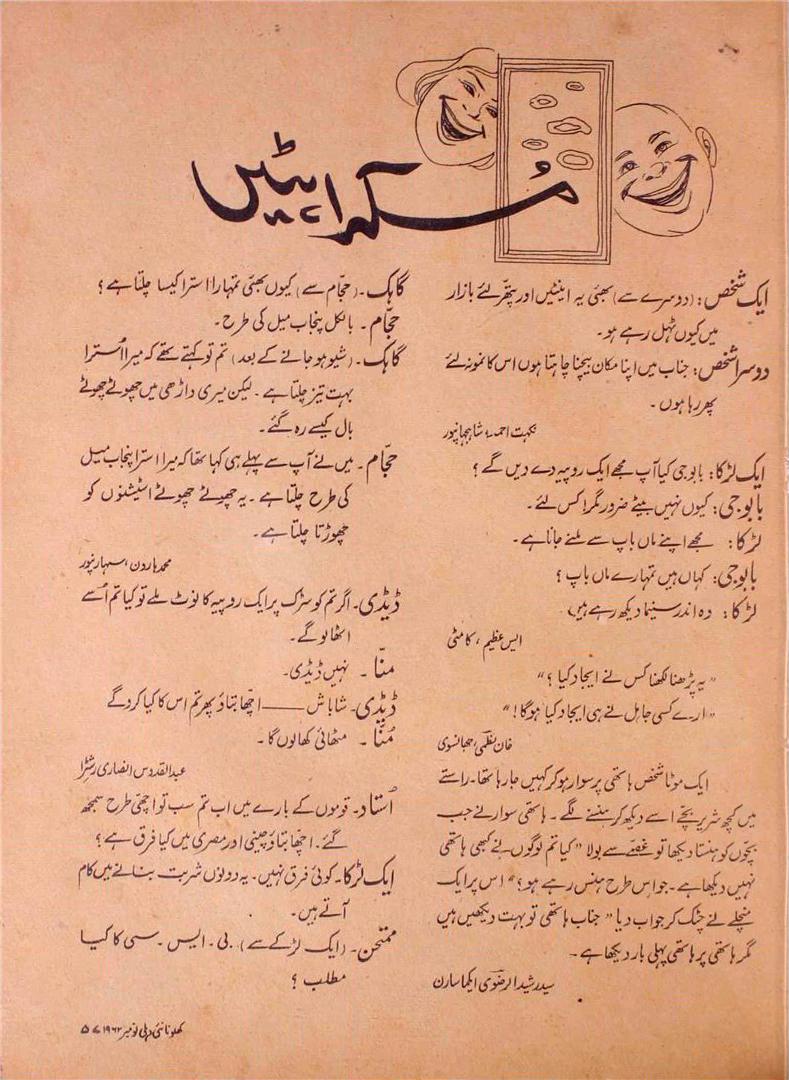 مُسکراہٹیں
ایک شخص: (دوسرے سے) بھئی یہ اینٹیں اور پتھر لئے بازار
میں کیوں ٹہل رہے ہو۔
دوسرا شخص: جناب میں اپنا مکان بیچنا چاہتا ہوں اس کا نمونہ لئے
پھر رہا ہوں۔
نکہت احمد، شاہجہانپور
ایک لڑکا: بابوجی کیا آپ مجھے ایک روپیہ دے دیں گے؟
بابوجی: کیوں نہیں بیٹے ضرور مگر کس لئے۔
لڑکا: مجھے اپنے ماں باپ سے ملنے جانا ہے۔
بابوجی: کہاں ہیں تمہارے ماں باپ؟
لڑکا: وہ اندر سنیما دیکھ رہے ہیں۔
ایس عظیم، کامٹی
"یہ پڑھنا لکھنا کس نے ایجاد کیا؟"
"ارے کسی جاہل نے ہی ایجاد کیا ہوگا!"
خان نظمی، جھانسوی
ایک موٹا شخص ہاتھی پر سوار ہو کر کہیں جا رہا تھا۔ راستے
میں کچھ شریر بچّے اسے دیکھ کر ہنسنے لگے۔ ہاتھی سوار نے جب
بچّوں کو ہنستا دیکھا تو غصّے سے بولا "کیا تم لوگوں نے کبھی ہاتھی
نہیں دیکھا ہے۔ جو اس طرح ہنس رہے ہو؟" اس پر ایک
منچلے نے چٹک کر جواب دیا "جناب ہاتھی تو بہت دیکھیں ہیں
مگر ہاتھی پر ہاتھی پہلی بار دیکھا ہے۔
سید رشید الرضوی ایکما سارن
گاہک۔ (حجّام سے) کیوں بھئی تمہارا استرا کیسا چلتا ہے؟
حجّام۔ بالکل پنجاب میل کی طرح۔
گاہک۔ (شیو ہو جانے کے بعد) تم تو کہتے تھے کہ میرا اُسترا
بہت تیز چلتا ہے۔ لیکن میری داڑھی میں چھوٹے چھوٹے
بال کیسے رہ گئے۔
حجّام۔ میں نے آپ سے پہلے ہی کہا تھا کہ میرا استرا پنجاب میل
کی طرح چلتا ہے۔ یہ چھوٹے چھوٹے اسٹیشنوں کو
چھوڑتا چلتا ہے۔
محمد ہارون، سہارنپور
ڈیڈی۔ اگر تم کو سڑک پر ایک روپیہ کا نوٹ ملے تو کیا تم اُسے
اٹھا لوگے۔
منّا۔ نہیں ڈیڈی۔
ڈیڈی۔ شاباش ـــ اچّھا بتاؤ پھر تم اس کا کیا کرو گے
مُنّا۔ مٹھائی کھالوں گا۔
عبدالقدوس انصاری رشڑا
اُستاد۔ قوموں کے بارے میں اب تم سب تو اچّھی طرح سمجھ
گئے۔ اچّھا بتاؤ چینی اور مصری میں کیا فرق ہے؟
ایک لڑکا۔ کوئی فرق نہیں۔ یہ دونوں شربت بنانے میں کام
آتے ہیں۔
ممتحن۔ (ایک لڑکے سے) بی۔ ایس۔ سی کا کیا
مطلب؟
کھلونا نئی دہلی نومبر ۱۹۶۲ء ۵۷